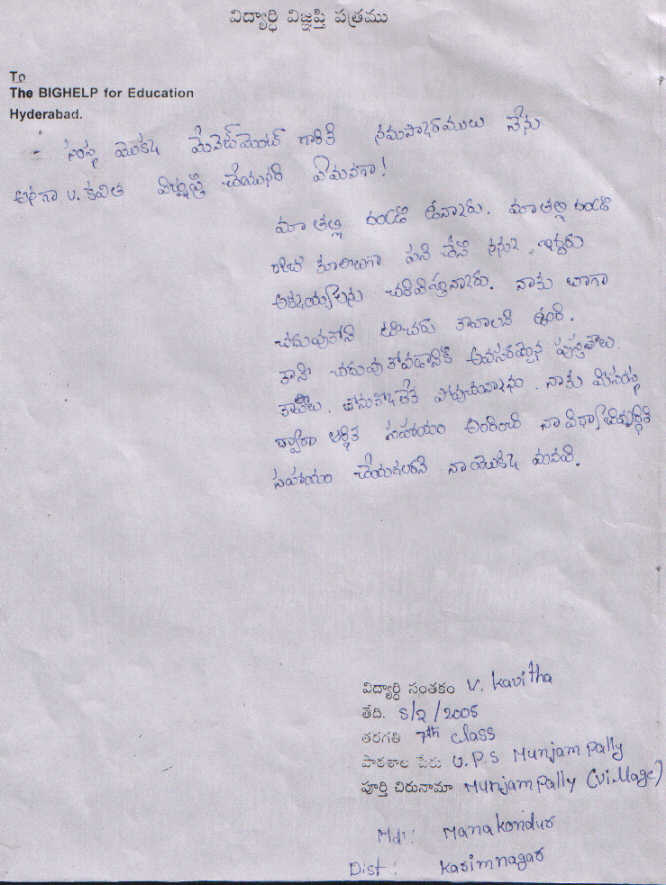 విద్యార్థి విజ్ఞప్తి పత్రము
To
The BIGHELP for Education
Hyderabad.
సంస్థ యొక్క మేనేజ్‌మెంట్ గారికి నమస్కారములు నేను
అనగా V. కవిత విజ్ఞప్తి చేయునది ఏమనగా!
మా తల్లి దండ్రి ఉన్నారు. మా తల్లి దండ్రి
పని చేసి నన్ను, ఇద్దరు
చదివిస్తున్నారు. నాకు బాగా
చదువుకోని టీచరు కావాలని ఉంది.
కాని చదువు కోవడానికి అవసరమైన పుస్తకాలు
కొనుకోలేక పోవుచున్నాను. నాకు మీసంస్థ
ద్వారా ఆర్థిక సహాయం అందించి నా విధ్యాభివృద్ధికి
సహాయం చేయగలరని నా యొక్క మనవి.
విద్యార్థి సంతకం V. Kavitha
తేది. 5/2/2005
తరగతి 7th class
పాఠశాల పేరు U.P.S Munjam pally
పూర్తి చిరునామా Munjampally (Village)
Mdl: Manakondur
Dist: Karimnagar